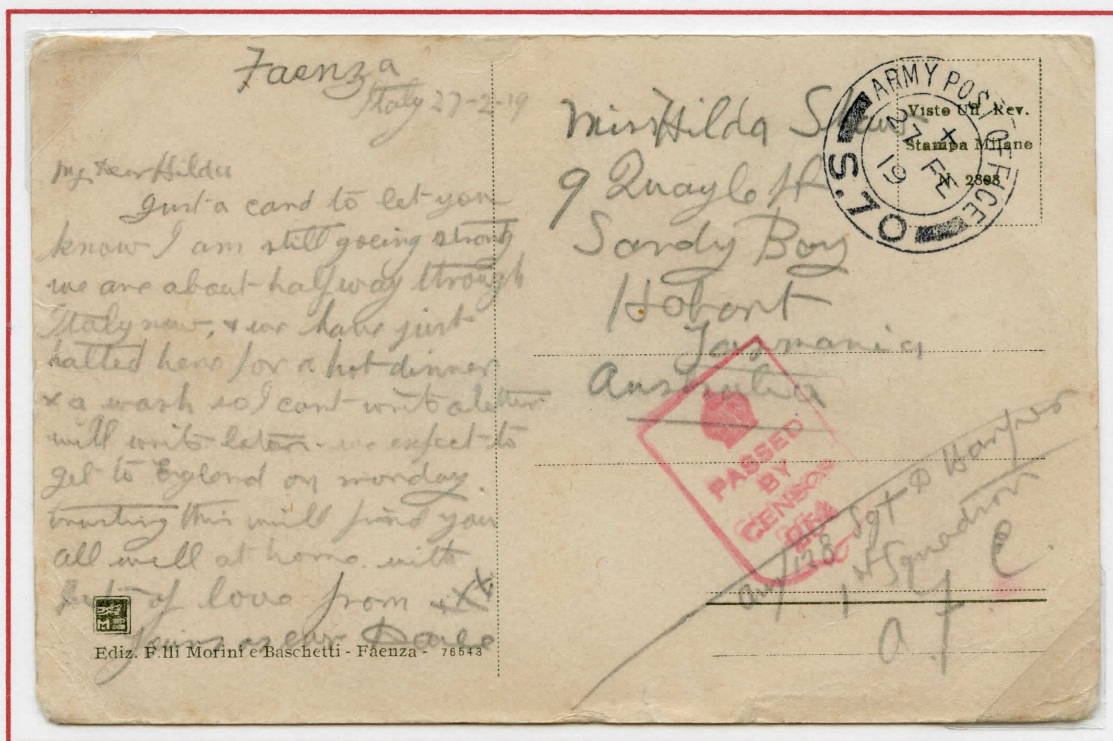 Faenza
Italy 27-2-19
My Dear Hilda
Just a card to let you
know I am still going strong
we are about half way through
Italy now, & we have just
halted here for a hot dinner
& a wash so I cant write a letter
will write later. we expect to
get to England on monday.
trusting this will find you
all well at home. with
of love from xxx
yours as ever
Ediz. F.lli Morini e Baschetti - Faenza - 76543
Miss Hilda
9 Quayle St
Sandy Bay
Hobart
Tasmania
Australia
ARMY POST OFFICE
X
27 FE
19
S.70
Visto Uff. Rev.
Stampa Milano
N 2808
PASSED
BY
CENSOR
Sgt D Harper
1st Squadron
A. F. C.